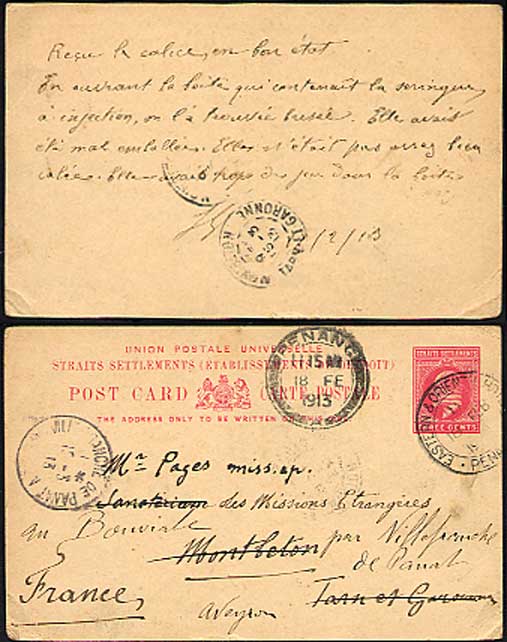 Reçu la caisse, en bon état.
En ouvrant la boîte qui contenait la seringue
à injection, on l'a trouvée brisée. Elle avait
été mal emballée. Elle n'était pas assez bien
calée. Elle avait trop de jeu dans la boîte
/2/13
TARN-ET-GARONNE
UNION POSTALE UNIVERSELLE
STRAITS SETTLEMENTS (ETABLISSEMENTS DU DETROIT)
POST CARD
THE ADDRESS ONLY TO BE WRITTEN ON THIS SIDE
PENANG
11.15 AM
18 FE
1913
STRAITS SETTLEMENTS
THREE CENTS
EASTERN & ORIENTAL HOTEL
PENANG
Mr Pages miss. ap.
Sanatorium des Missions Etrangères
au par Villefranche
Montbeton de Panat
France Aveyron Tarn et Garonne